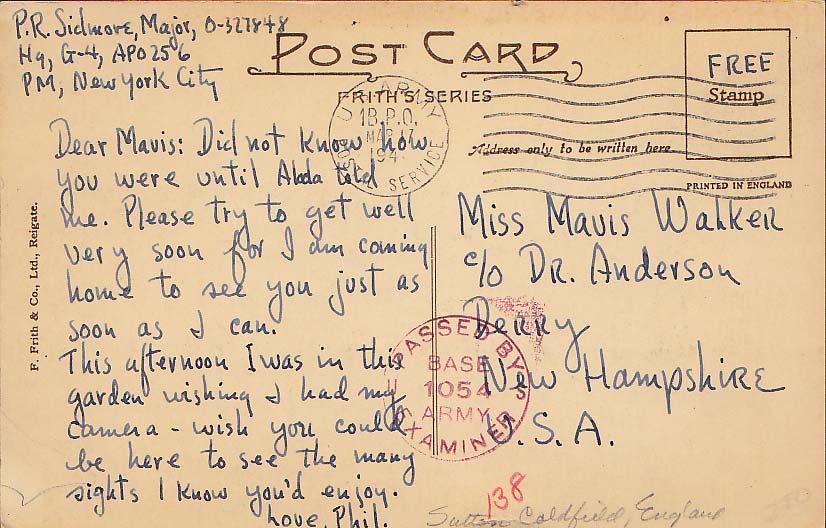 P.R. Sidmore, Major, O-327848
Hq, G-4, APO 256
PM, New York City
POST CARD
FRITH'S SERIES
FREE
Stamp
Address only to be written here
PRINTED IN ENGLAND
U.S. ARMY
1B.P.O.
MAR 17
194
POSTAL SERVICE
Dear Mavis: Did not know how
you were until Alda told
me. Please try to get well
very soon for I am coming
home to see you just as
soon as I can.
This afternoon I was in this
garden wishing I had my
camera - wish you could
be here to see the many
sights I know you'd enjoy.
Love, Phil.
Miss Mavis Walker
c/o Dr. Anderson
Derry
New Hampshire
U.S.A.
PASSED BY
BASE
1054
ARMY
EXAMINER
138
Sutton Coldfield England
F. Frith & Co., Ltd., Reigate.